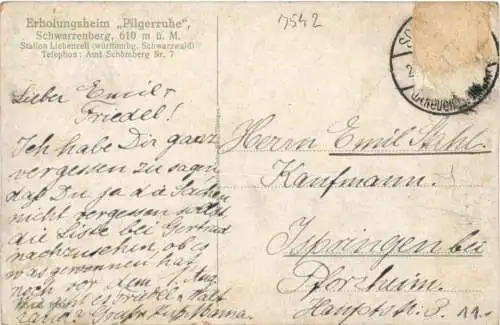 Erholungsheim „Pilgerruhe",
Schwarzenberg, 610 m ü. M.
Station Liebenzell (württmbg. Schwarzwald)
Telephon: Amt Schömberg Nr. 7
7542
Lieber Emil &
Friedel!
Ich habe Dir ganz
vergessen zu sagen
daß Du ja die Sachen
nicht vergessen sollst
die Liste bei Gertrud
nachzusehen, ob es
was gewonnen hat
noch vor dem 1. Aug.
Wie geht es Friedel &
Gruß Anna.
Herrn Emil Stahl.
Kaufmann.
Ispringen bei
Pforzheim.
Hauptstr. 3.
11.-